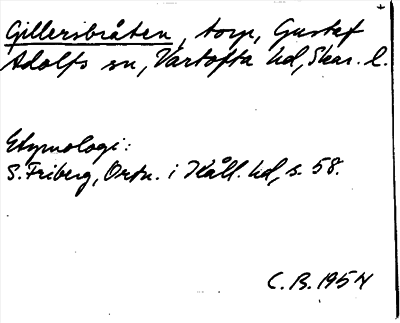 Gillersbråten, torp, Gustaf
Adolfs sn, Vartofta hd, Skar. l.
Etymologi:
S. Friberg, Ortn. i Kåll. hd, s. 58.
C. B. 1954